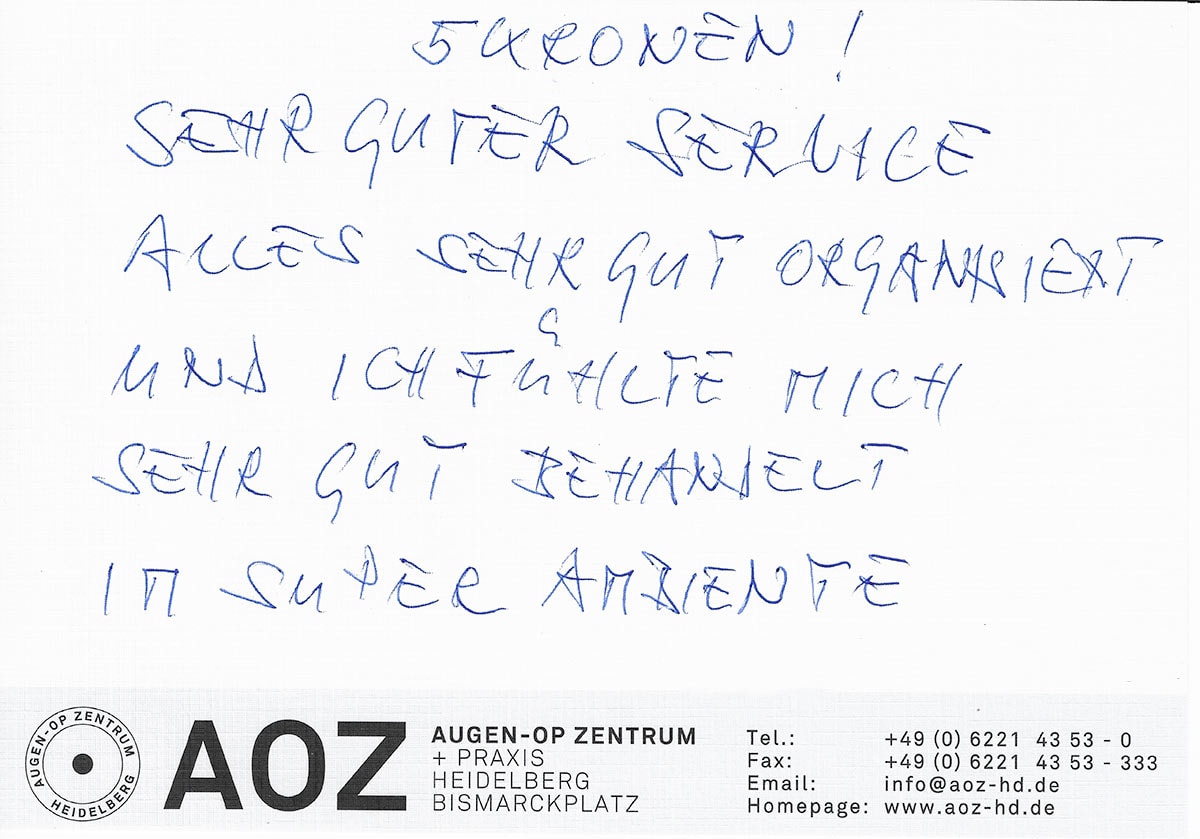 5 KRONEN !
SEHR GUTER SERVICE
ALLES SEHR GUT ORGANISIERT
UND ICH FÜHLTE MICH
SEHR GUT BEHANDELT
IM SUPER AMBIENTE
AUGEN-OP ZENTRUM HEIDELBERG
AOZ
AUGEN-OP ZENTRUM
+ PRAXIS
HEIDELBERG
BISMARCKPLATZ
Tel.: +49 (0) 6221 43 53 - 0
Fax: +49 (0) 6221 43 53 - 333
Email: info@aoz-hd.de
Homepage: www.aoz-hd.de